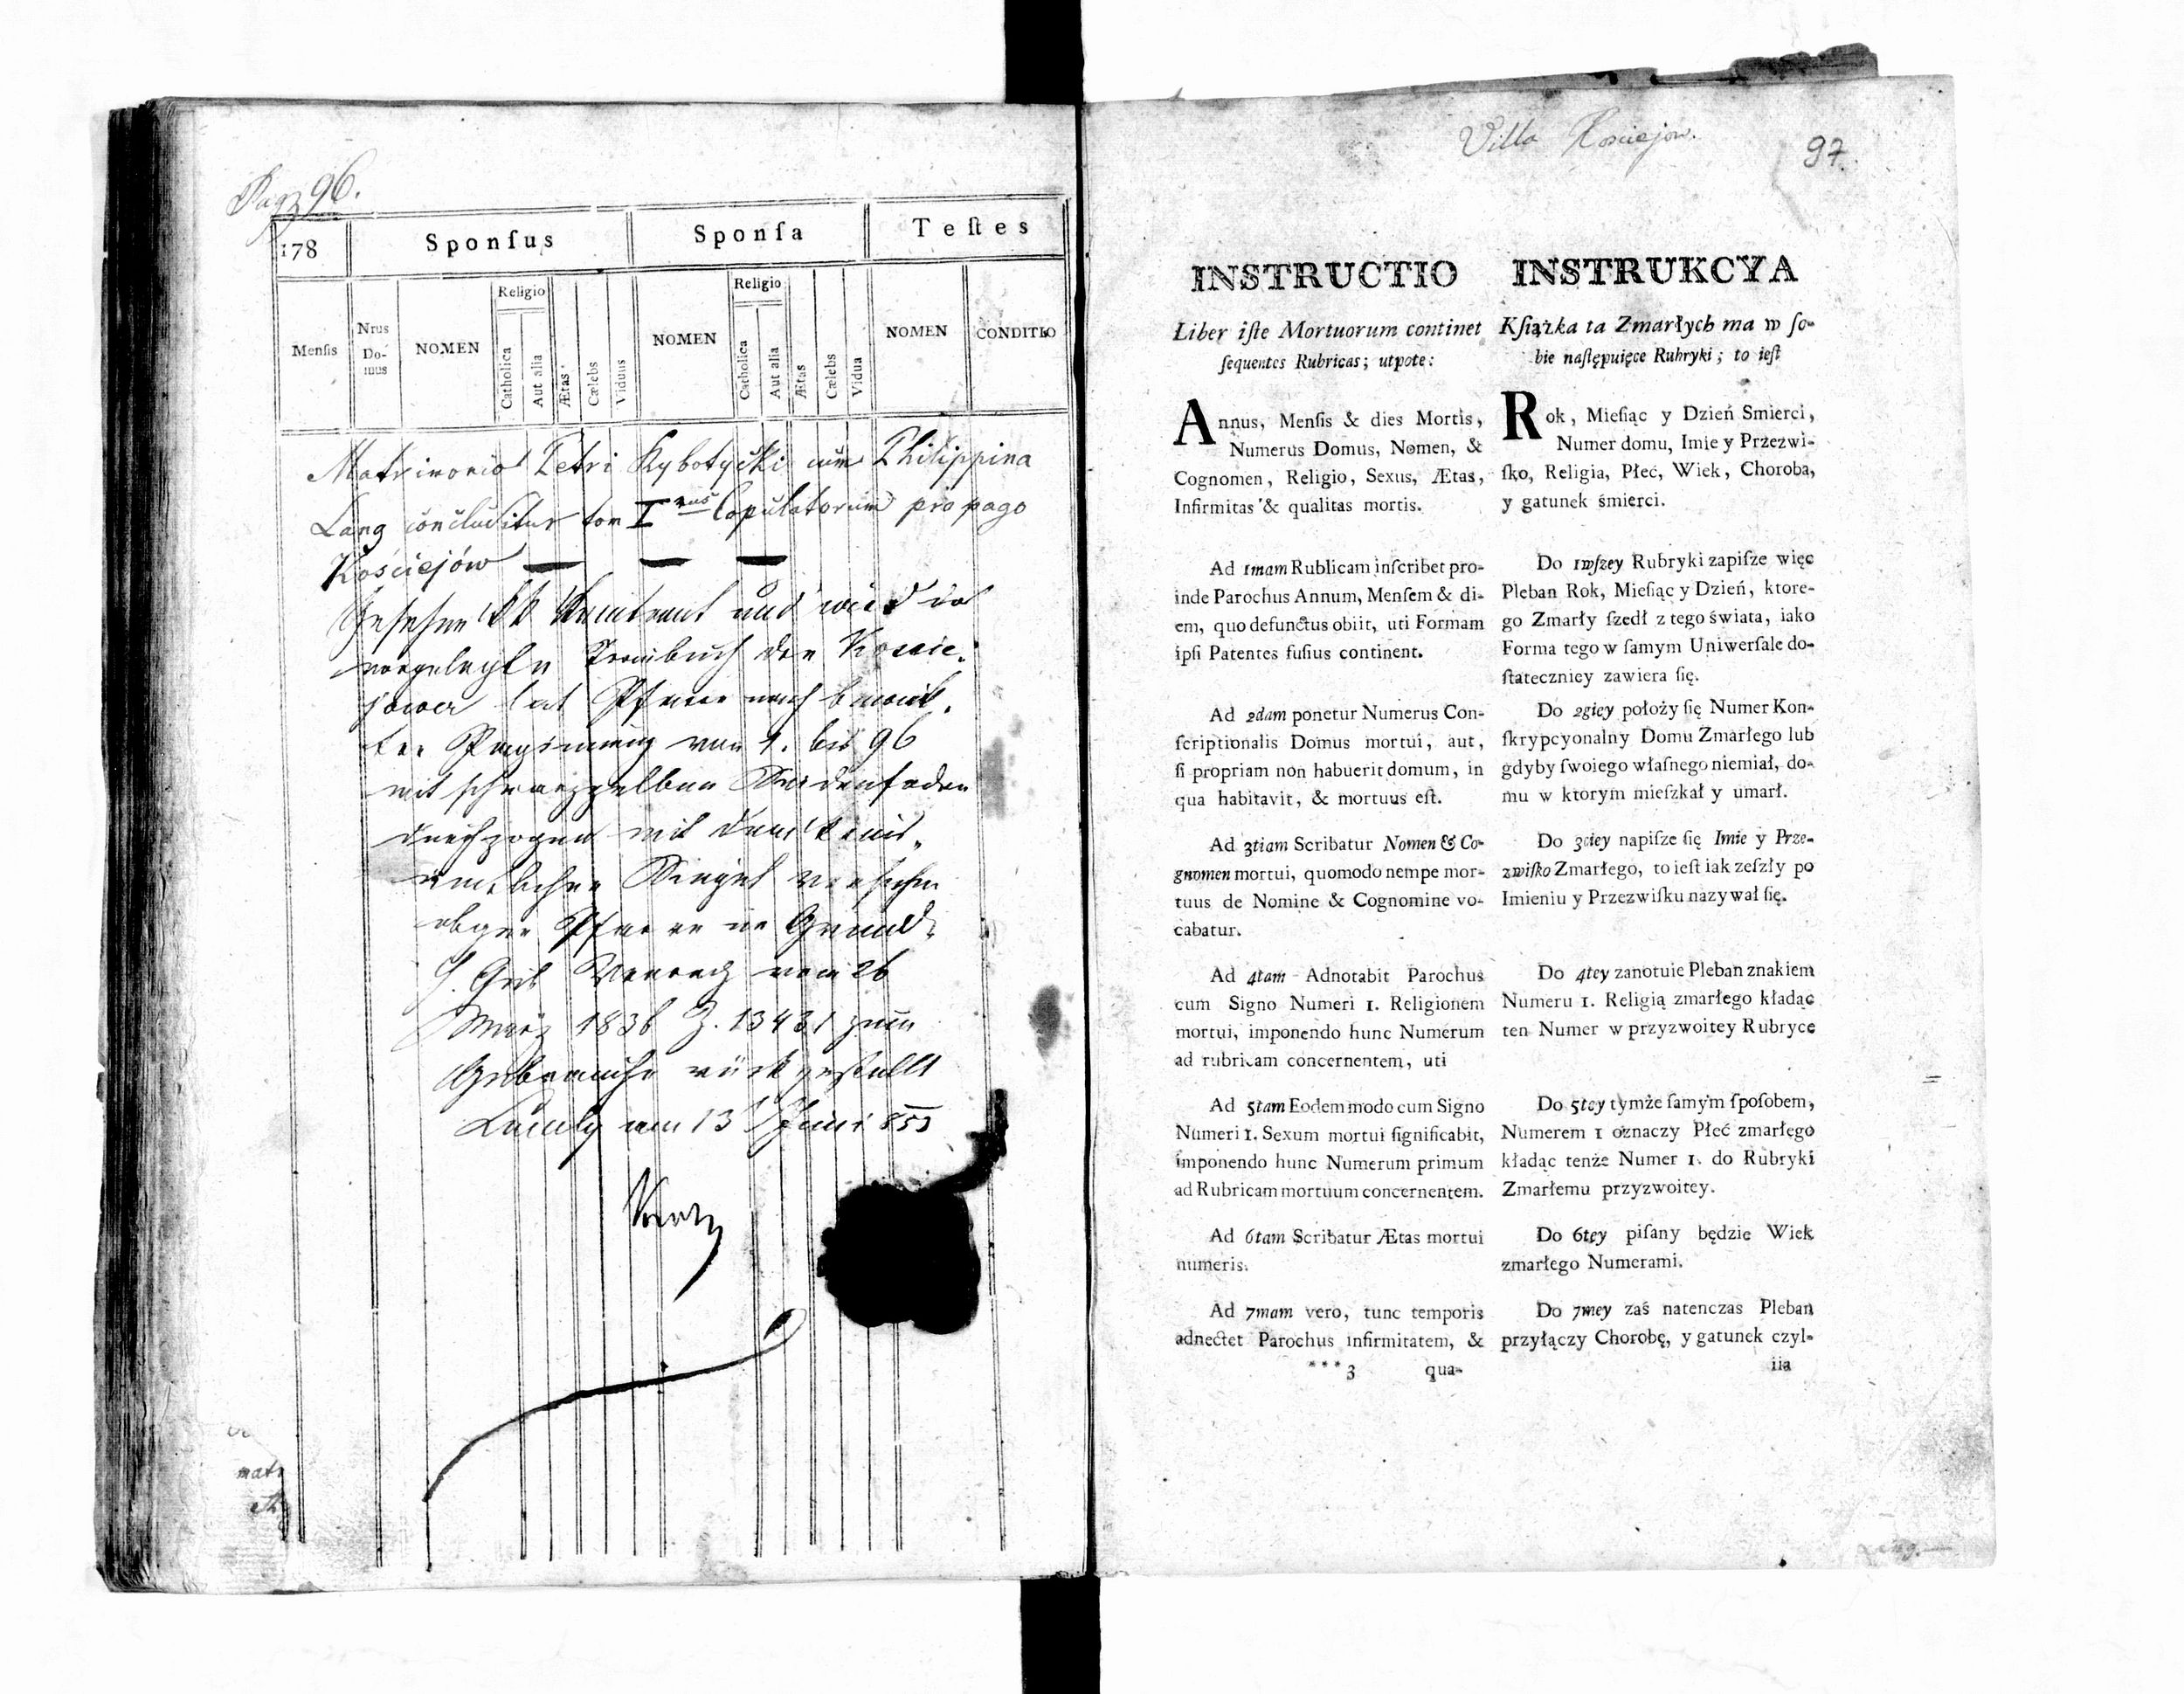 Pag 96.
178 Sponſus Sponſa Teſtes
Menſis Nrus Do- mus NOMEN Religio Catholica Aut alia Ætas Cælebs Viduus NOMEN Religio Catholica Aut alia Ætas Cælebs Vidua NOMEN CONDITIO
Matrimonio Petri Rybotycki cum Philippina
Lang concluditur tom I Copulatorum pro pago
Kościejów
Gesehen und wird das
vorgelegte Traubuch der Koscie-
jower lat Pfarre nach bewirk-
ter Paginirung von 1. bis 96
mit schwarzgelben Seidenfaden
durchzogen mit dem Kreis-
ämtlichen Siegel versehen
obiger Pfarre im Grunde
h. Gub Verordg vom 26
März 1836 Z. 13431 zum
Gebrauche rückgestellt
am 13 Juni 853
Villa Kosciejow.
97.
INSTRUCTIO
Liber iſte Mortuorum continet
ſequentes Rubricas; utpote:
Annus, Menſis & dies Mortis,
Numerus Domus, Nomen, &
Cognomen, Religio, Sexus, Ætas,
Infirmitas & qualitas mortis.
Ad 1mam Rublicam inſcribet pro-
inde Parochus Annum, Menſem & di-
em, quo defunctus obiit, uti Formam
ipſi Patentes fuſius continent.
Ad 2dam ponetur Numerus Con-
ſcriptionalis Domus mortui, aut,
ſi propriam non habuerit domum, in
qua habitavit, & mortuus eſt.
Ad 3tiam Scribatur Nomen & Co-
gnomen mortui, quomodo nempe mor-
tuus de Nomine & Cognomine vo-
cabatur.
Ad 4tam Adnotabit Parochus
cum Signo Numeri 1. Religionem
mortui, imponendo hunc Numerum
ad rubricam concernentem, uti
Ad 5tam Eodem modo cum Signo
Numeri 1. Sexum mortui ſignificabit,
imponendo hunc Numerum primum
ad Rubricam mortuum concernentem.
Ad 6tam Scribatur Ætas mortui
numeris.
Ad 7mam vero, tunc temporis
adnectet Parochus infirmitatem, &
***3 qua-
INSTRUKCYA
Kſiążka ta Zmarłych ma w ſo-
bie naſtępuięce Rubryki; to ieſt
Rok, Mieſiąc y Dzień Smierci,
Numer domu, Imie y Przezwi-
ſko, Religia, Płeć, Wiek, Choroba,
y gatunek śmierci.
Do 1wſzey Rubryki zapiſze więc
Pleban Rok, Mieſiąc y Dzień, ktore-
go Zmarły ſzedł z tego świata, iako
Forma tego w ſamym Uniwerſale do-
ſtateczniey zawiera ſię.
Do 2giey położy ſię Numer Kon-
ſkrypcyonalny Domu Zmarłego lub
gdyby ſwoiego właſnego niemiał, do-
mu w ktorym mieſzkał y umarł.
Do 3ciey napiſze ſię Imie y Prze-
zwiſko Zmarłego, to ieſt iak zeſzły po
Imieniu y Przezwiſku nazywał ſię.
Do 4tey zanotuie Pleban znakiem
Numeru 1. Religią zmarłego kładąc
ten Numer w przyzwoitey Rubryce
Do 5tey tymże ſamym ſpoſobem,
Numerem 1 oznaczy Płeć zmarłego
kładąc tenże Numer 1. do Rubryki
Zmarłemu przyzwoitey.
Do 6tey piſany będzie Wiek
zmarłego Numerami.
Do 7mey zaś natenczas Pleban
przyłączy Chorobę, y gatunek czyl-
iia